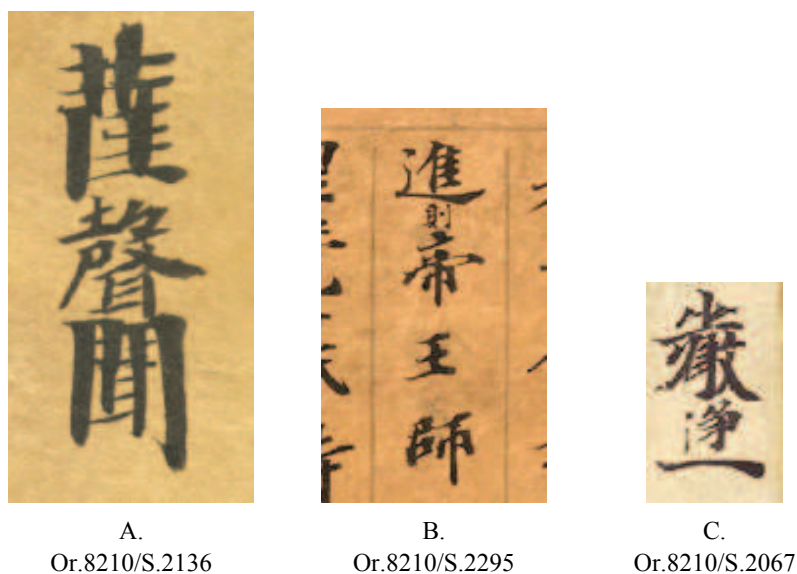 聲聞
進則帝王師
嚴浄一
A.
Or.8210/S.2136
B.
Or.8210/S.2295
C.
Or.8210/S.2067